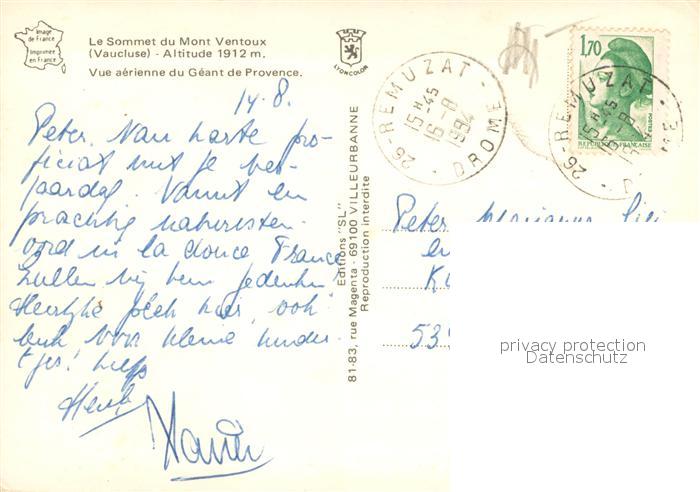 Image
de France
Imprimée
en France
Le Sommet du Mont Ventoux
(Vaucluse) - Altitude 1912 m.
Vue aérienne du Géant de Provence.
LYONCOLOR
14.8.
Peter. Van harte pro-
ficiat met je ver-
jaardag. Vanuit een
prachtig naturisten-
oord in la douce France
zullen wij hem gedenken
Heerlijke plek hier, ook
leuk voor kleine kinder-
tjes! Liefs
Henk
Editions "SL"
81-83, rue Magenta - 69100 VILLEURBANNE
Reproduction interdite
26-REMUZAT-
15H45
16-8
1994
DROME
1,70
POSTES
REPUBLIQUE FRANÇAISE
26-REMUZAT-
15H45
16-8
DROME
Peter, Marianne
en
53
privacy protection
Datenschutz